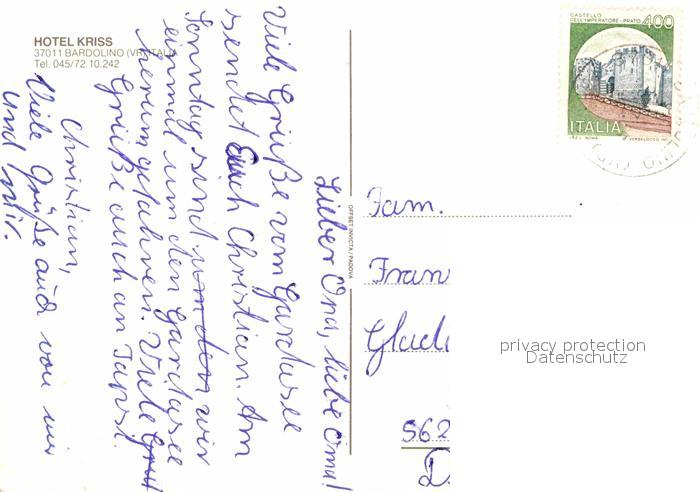 HOTEL KRISS
37011 BARDOLINO (VR) ITALIA
Tel. 045/72.10.242
Lieber Opa, liebe Oma!
Viele Grüße vom Gardasee
sendet Euch Christian. Am
Sonntag sind wir
einmal um den Gardasee
herum gefahren. Viele Grüße
Grüße auch an
Christian,
Viele Grüße auch von mir
und
OFFSET INVICTA / PADOVA
CASTELLO
DELL'IMPERATORE - PRATO 400
ITALIA
Fam.
Fran
562
D
privacy protection
Datenschutz